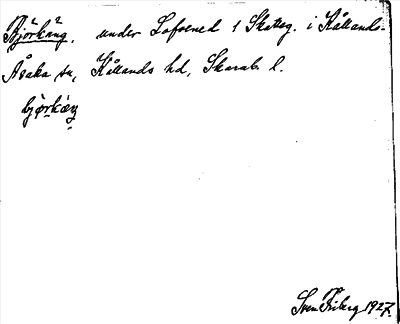 Björkäng, under Lofsened 1 Skatteg. i Kållands-
Åsaka sn, Kållands hd, Skarab. l.
björkäŋ
Sven Friberg 1927.